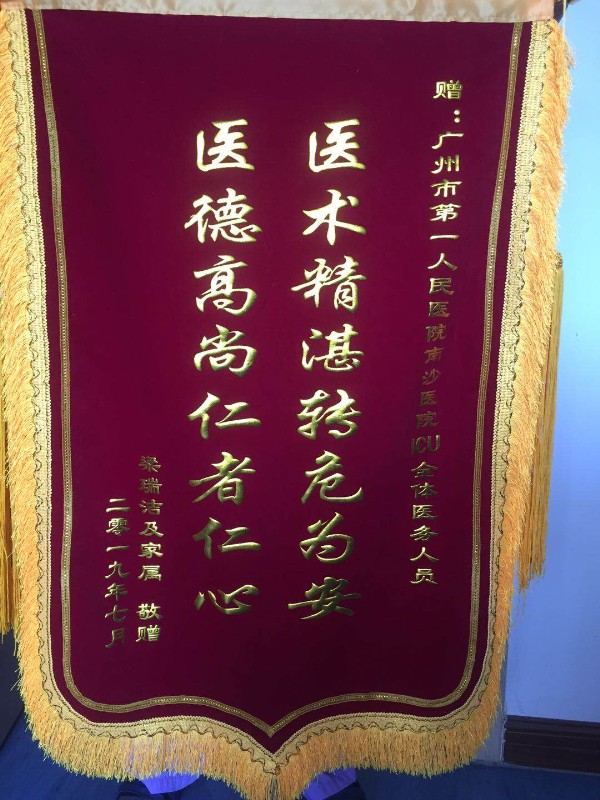 赠：广州市第一人民医院南沙医院ICU全体医务人员
医术精湛转危为安
医德高尚仁者仁心
梁瑞洁及家属 敬赠
二零一九年七月